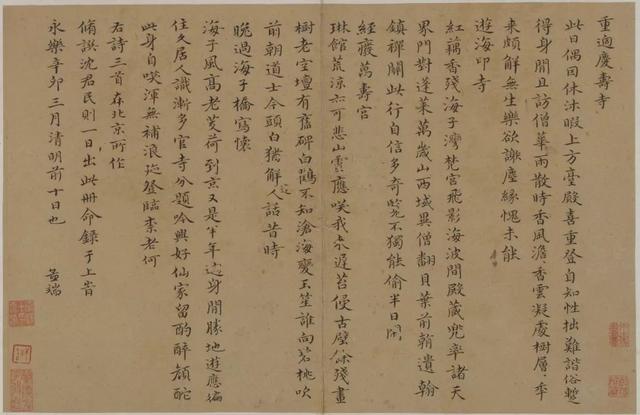 重過慶壽寺
此日偶同休沐暇上方臺殿喜重登自知性拙難諧俗暫
得身閒且訪僧華雨散時香風澹香雲凝處樹層〻年
來頗解無生樂欲謝塵緣愧未能
遊海印寺
紅藕香殘海子灣梵宮飛影海波間殿藏兜率諸天
界門對蓬萊萬歲山西域異僧翻貝葉前朝遺翰
鎮禪關此行自信多奇覽不獨能偷半日閒
經廢萬壽宮
琳館荒涼亦可悲山靈應嘆我來遲苔侵古壁餘殘畫
樹老空壇有舊碑白鶴不知滄海變玉笙誰向碧桃吹
前朝道士今頭白猶解逢人話昔時
晚過海子橋寫懷
海子風高老芰荷到京又是半年過身閒勝地遊應遍
住久居人識漸多官寺分題吟興好仙家留酌醉顏酡
此身自笑渾無補浪跡登臨柰老何
右詩三首在北京所作
脩譔沈君民則一日出此冊命錄于上昔
永樂辛卯三月清明前十日也
孟端